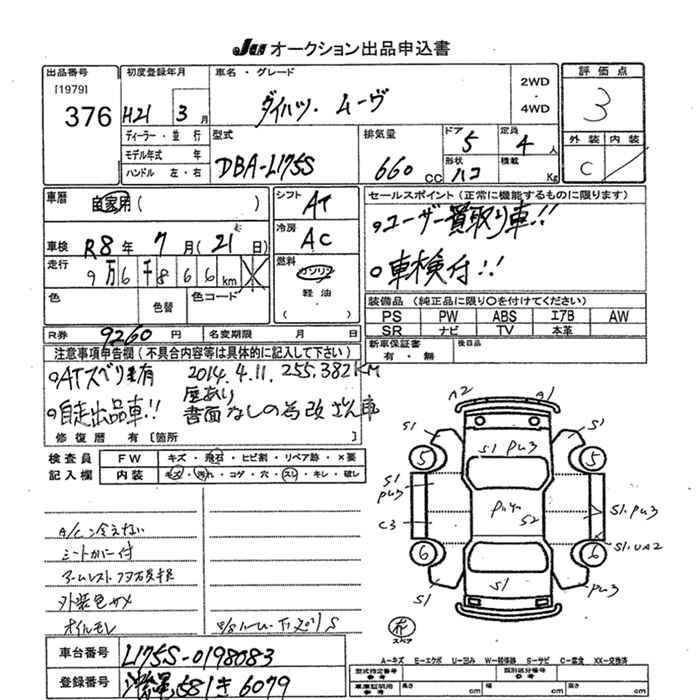 JU オークション出品申込書
出品番号 初度登録年月 車名・グレード 2WD・4WD 評価点
[1979]
376 H21 3月 ダイハツ・ムーヴ 3
ディーラー・並行 型式 排気量 ドア 定員 外装 内装
モデル年式 年 DBA-L175S 660cc 5 4人 C
ハンドル 左・右 形状 積載
ハコ Kg
車歴 自家用( ) シフト AT セールスポイント(正常に機能するものに限ります)
冷房 AC ○ユーザー買取り車!!
車検 R8年 7月(21日) ○車検付!!
走行 9万6千866km 燃料 ガソリン
軽油
( )
色 色替 色コード 装備品(純正品に限り○を付けてください)
PS PW ABS エアB AW
SR ナビ TV 本革
R券 9260円 名変期限 月 日 新車保証書 後日品
有・無
注意事項申告欄(不具合内容等は具体的に記入して下さい)
○ATスベリ有 2014.4.11 255,382KM
○自走出品車!! 書面なしの為改ざん車
修復歴 有[箇所 ]
検査員 FW キズ・飛石・ヒビ割・リペア跡・×要
記入欄 内装 キズ・汚れ・コゲ・穴・スレ・キレ・破レ
A/C冷えない
シートカバー付
外装色サメ
オイルモレ
A2 A1
S1 S1
S1 PU3
5 5
S1
PU3
S2
S1.PU3
C3
S1.UA2
6 6
S1 S1 PU3
スペア
車台番号 L175S-0198083
登録番号 581 き 6079
A-キズ E-エクボ U-凹み W-補修跡 S-サビ C-腐食 XX-交換済
型式指定番号 類別区分番号
参考 参考
車庫証明用 長さ cm 幅 cm 高さ cm
参考